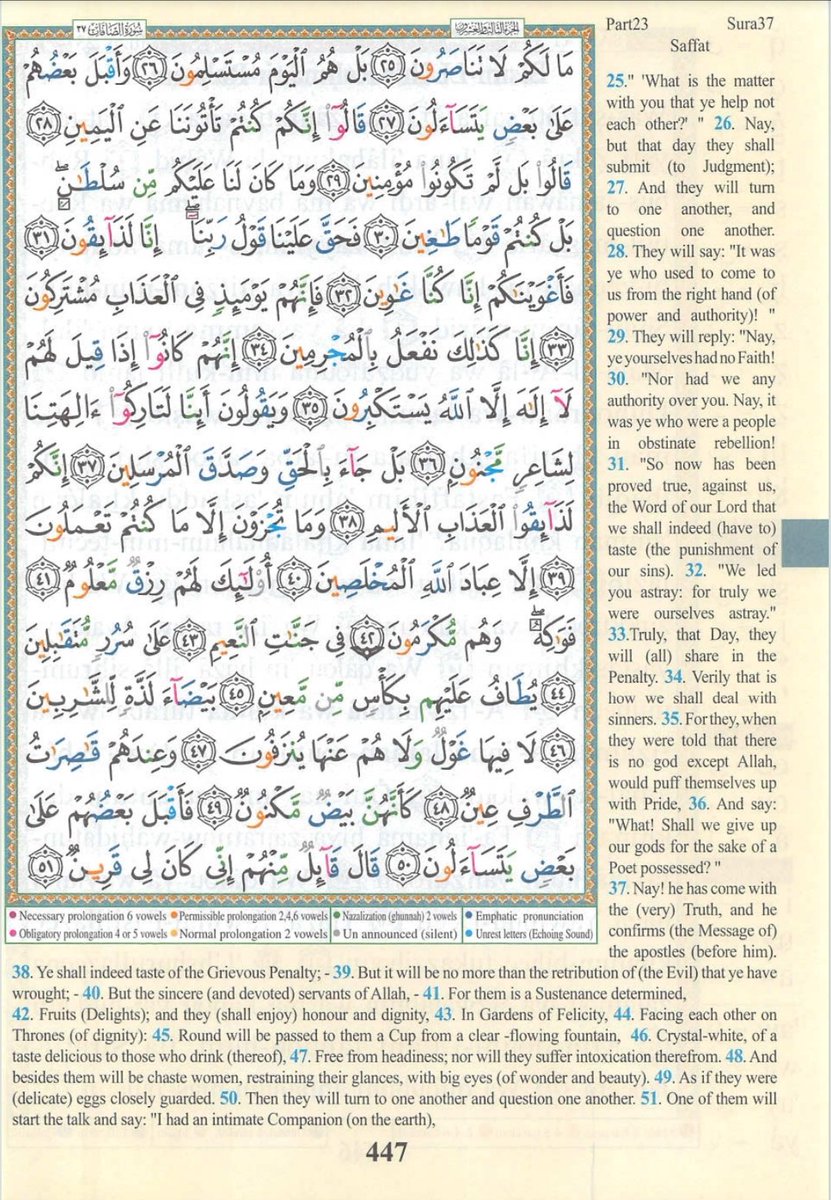 سُورَةُ الصَّافَّاتِ ٣٧
الجزء الثالث والعشرون
Part23 Sura37
Saffat
مَا لَكُمْ لَا تَنَاصَرُونَ ٢٥ بَلْ هُمُ ٱلْيَوْمَ مُسْتَسْلِمُونَ ٢٦ وَأَقْبَلَ بَعْضُهُمْ
عَلَىٰ بَعْضٍ يَتَسَآءَلُونَ ٢٧ قَالُوٓا۟ إِنَّكُمْ كُنتُمْ تَأْتُونَنَا عَنِ ٱلْيَمِينِ ٢٨
قَالُوا۟ بَل لَّمْ تَكُونُوا۟ مُؤْمِنِينَ ٢٩ وَمَا كَانَ لَنَا عَلَيْكُم مِّن سُلْطَٰنٍۭ ۖ
بَلْ كُنتُمْ قَوْمًا طَٰغِينَ ٣٠ فَحَقَّ عَلَيْنَا قَوْلُ رَبِّنَآ ۖ إِنَّا لَذَآئِقُونَ ٣١
فَأَغْوَيْنَٰكُمْ إِنَّا كُنَّا غَٰوِينَ ٣٢ فَإِنَّهُمْ يَوْمَئِذٍ فِى ٱلْعَذَابِ مُشْتَرِكُونَ
٣٣ إِنَّا كَذَٰلِكَ نَفْعَلُ بِٱلْمُجْرِمِينَ ٣٤ إِنَّهُمْ كَانُوٓا۟ إِذَا قِيلَ لَهُمْ
لَآ إِلَٰهَ إِلَّا ٱللَّهُ يَسْتَكْبِرُونَ ٣٥ وَيَقُولُونَ أَئِنَّا لَتَارِكُوٓا۟ ءَالِهَتِنَا
لِشَاعِرٍ مَّجْنُونٍۭ ٣٦ بَلْ جَآءَ بِٱلْحَقِّ وَصَدَّقَ ٱلْمُرْسَلِينَ ٣٧ إِنَّكُمْ
لَذَآئِقُوا۟ ٱلْعَذَابِ ٱلْأَلِيمِ ٣٨ وَمَا تُجْزَوْنَ إِلَّا مَا كُنتُمْ تَعْمَلُونَ
٣٩ إِلَّا عِبَادَ ٱللَّهِ ٱلْمُخْلَصِينَ ٤٠ أُو۟لَٰٓئِكَ لَهُمْ رِزْقٌ مَّعْلُومٌ ٤١
فَوَٰكِهُ ۖ وَهُم مُّكْرَمُونَ ٤٢ فِى جَنَّٰتِ ٱلنَّعِيمِ ٤٣ عَلَىٰ سُرُرٍ مُّتَقَٰبِلِينَ
٤٤ يُطَافُ عَلَيْهِم بِكَأْسٍ مِّن مَّعِينٍۭ ٤٥ بَيْضَآءَ لَذَّةٍ لِّلشَّٰرِبِينَ
٤٦ لَا فِيهَا غَوْلٌ وَلَا هُمْ عَنْهَا يُنزَفُونَ ٤٧ وَعِندَهُمْ قَٰصِرَٰتُ
ٱلطَّرْفِ عِينٌ ٤٨ كَأَنَّهُنَّ بَيْضٌ مَّكْنُونٌ ٤٩ فَأَقْبَلَ بَعْضُهُمْ عَلَىٰ
بَعْضٍ يَتَسَآءَلُونَ ٥٠ قَالَ قَآئِلٌ مِّنْهُمْ إِنِّى كَانَ لِى قَرِينٌ ٥١
Necessary prolongation 6 vowels Permissible prolongation 2,4,6 vowels Nazalization (ghunnah) 2 vowels Emphatic pronunciation
Obligatory prolongation 4 or 5 vowels Normal prolongation 2 vowels Un announced (silent) Unrest letters (Echoing Sound)
25." 'What is the matter
with you that ye help not
each other?' " 26. Nay,
but that day they shall
submit (to Judgment);
27. And they will turn
to one another, and
question one another.
28. They will say: "It was
ye who used to come to
us from the right hand (of
power and authority)! "
29. They will reply: "Nay,
ye yourselves had no Faith!
30. "Nor had we any
authority over you. Nay, it
was ye who were a people
in obstinate rebellion!
31. "So now has been
proved true, against us,
the Word of our Lord that
we shall indeed (have to)
taste (the punishment of
our sins). 32. "We led
you astray: for truly we
were ourselves astray."
33.Truly, that Day, they
will (all) share in the
Penalty. 34. Verily that is
how we shall deal with
sinners. 35. For they, when
they were told that there
is no god except Allah,
would puff themselves up
with Pride, 36. And say:
"What! Shall we give up
our gods for the sake of a
Poet possessed? "
37. Nay! he has come with
the (very) Truth, and he
confirms (the Message of)
the apostles (before him).
38. Ye shall indeed taste of the Grievous Penalty; - 39. But it will be no more than the retribution of (the Evil) that ye have
wrought; - 40. But the sincere (and devoted) servants of Allah, - 41. For them is a Sustenance determined,
42. Fruits (Delights); and they (shall enjoy) honour and dignity, 43. In Gardens of Felicity, 44. Facing each other on
Thrones (of dignity): 45. Round will be passed to them a Cup from a clear -flowing fountain, 46. Crystal-white, of a
taste delicious to those who drink (thereof), 47. Free from headiness; nor will they suffer intoxication therefrom. 48. And
besides them will be chaste women, restraining their glances, with big eyes (of wonder and beauty). 49. As if they were
(delicate) eggs closely guarded. 50. Then they will turn to one another and question one another. 51. One of them will
start the talk and say: "I had an intimate Companion (on the earth),
447